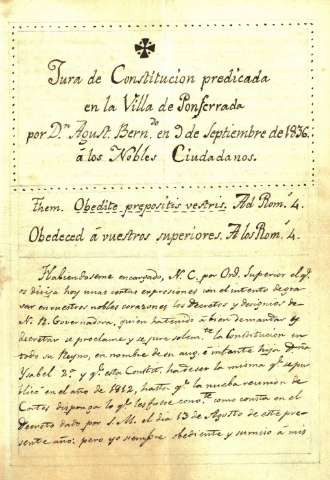 Jura de Constitucion predicada
en la Villa de Ponferrada
por D.n Agust. Bern.do en 9 de Septiembre de 1836
á los Nobles Ciudadanos.
Them. Obedite prepositis vestris. Ad Rom.s 4.
Obedeced á vuestros superiores. A los Rom.s 4.
Habiendoseme encargado, N. C. por Ord. Superior el q.e
os dirija hoy unas cortas expresiones con el intento de gra-
var en vuestros nobles corazones los decretos y designios de
N. R. Governadora, quien ha tenido á bien demandar y
decretar se proclame y se jure solem.te la Constitucion en
todo su Reyno, en nombre de su aug.e é infante hija Dña
Ysabel 2.a y q.e esta Constit. ha de ser la misma q.e se pu-
blicó en el año de 1812, hasta q.e la nueba reunion de
Cortes disponga lo q.e les fuese conv.te como consta en el
Decreto dado por S. M. el dia 13 de Agosto de este pre-
sente año: pero yo siempre obediente y sumiso á mis